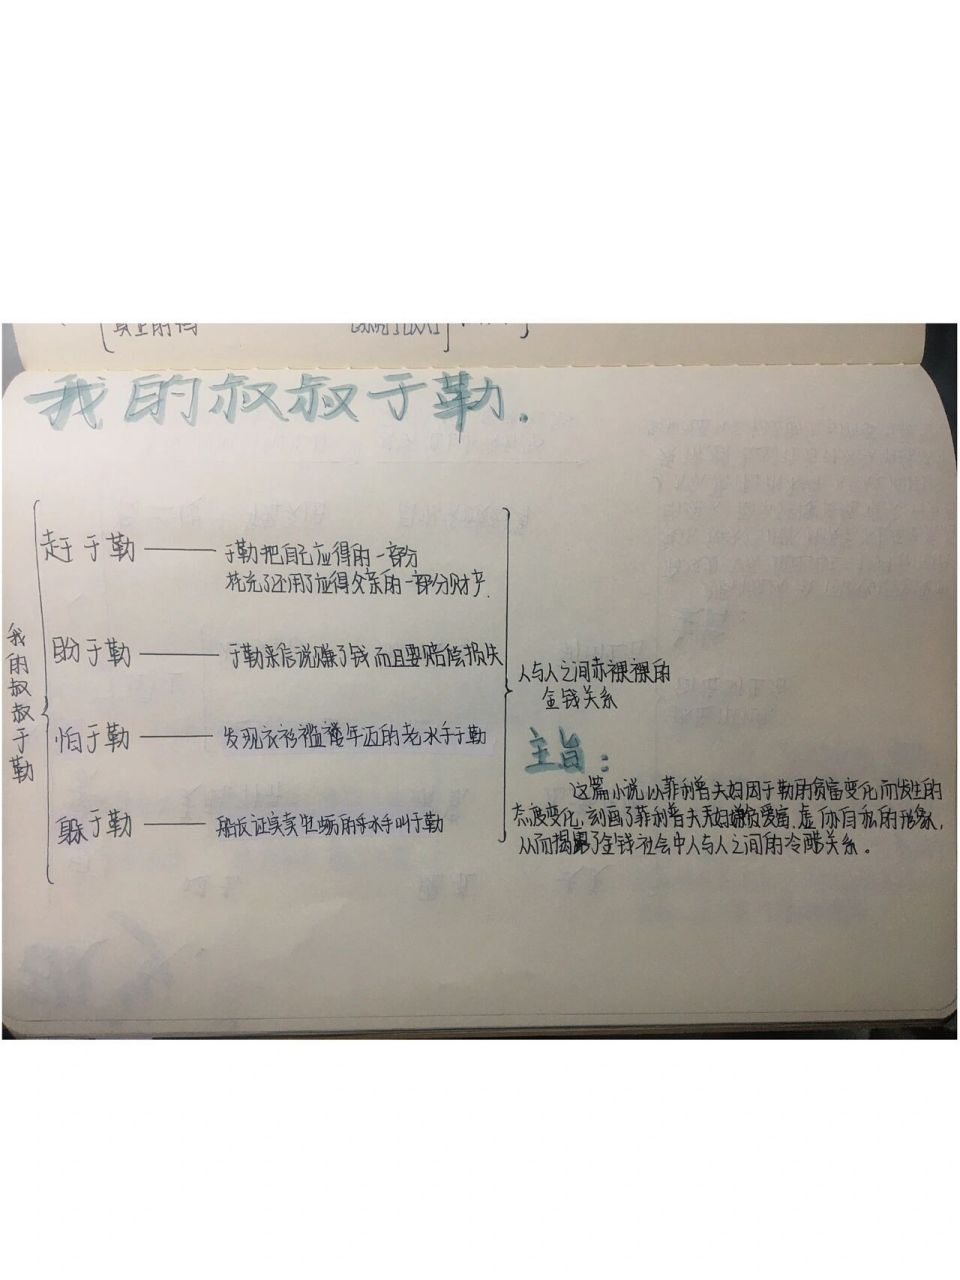 我的叔叔于勒.
我的叔叔于勒
赶于勒——于勒把自己应得的一部分
花光了还用了应得父亲的一部分财产.
盼于勒——于勒来信说赚了钱而且要赔偿损失
怕于勒——发现衣衫褴褛年迈的老水手于勒
躲于勒——船长证实卖牡蛎的水手叫于勒
人与人之间赤裸裸的
金钱关系
主旨:
这篇小说以菲利普夫妇因于勒的贫富变化而发生的
态度变化,刻画了菲利普夫妇嫌贫爱富,虚伪自私的形象,
从而揭露了金钱社会中人与人之间的冷酷关系。